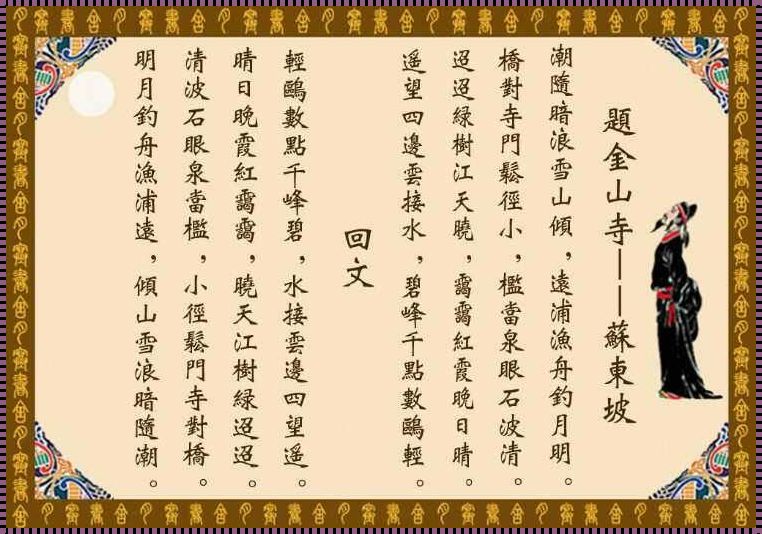 題金山寺——蘇東坡
潮隨暗浪雪山傾，遠浦漁舟釣月明。
橋對寺門鬆徑小，檻當泉眼石波清。
迢迢綠樹江天曉，靄靄紅霞晚日晴。
遥望四邊雲接水，碧峰千點數鷗輕。
回文
輕鷗數點千峰碧，水接雲邊四望遥。
晴日晚霞紅靄靄，曉天江樹綠迢迢。
清波石眼泉當檻，小徑鬆門寺對橋。
明月釣舟漁浦遠，傾山雪浪暗隨潮。